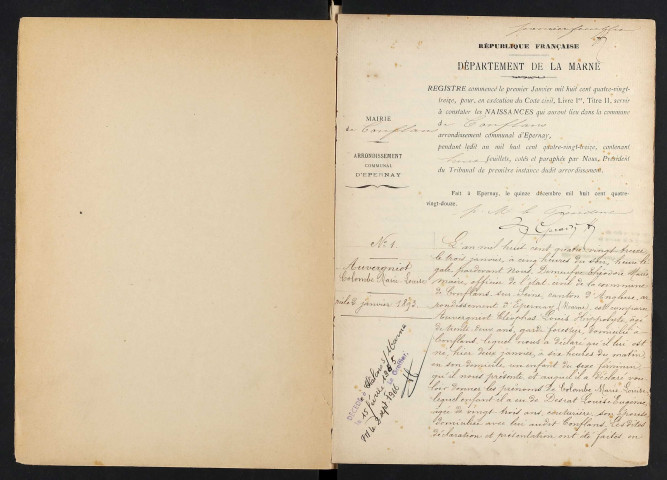 premier feuillet
RÉPUBLIQUE FRANÇAISE
DÉPARTEMENT DE LA MARNE
REGISTRE commencé le premier Janvier mil huit cent quatre-vingt-
treize, pour, en exécution du Code civil, Livre Ier, Titre II, servir
à constater les NAISSANCES qui auront lieu dans la commune
de Conflans
arrondissement communal d'Epernay,
pendant ledit an mil huit cent quatre-vingt-treize, contenant
feuillets, cotés et paraphés par Nous, Président
du Tribunal de première instance dudit arrondissement.
Fait à Epernay, le quinze décembre mil huit cent quatre-
vingt-douze.
MAIRIE
de Conflans
ARRONDISSEMENT
COMMUNAL
D'EPERNAY
No 1
Auvergniot
Colombe Marie Louise
née le 2 janvier 1893
DÉCÉDÉE à Châlons s/Marne
le 15 février 1965
Le Greffier,
L'an mil huit cent quatre vingt treize
le trois janvier, à cinq heures du soir, heure lé-
gale, pardevant Nous,
maire, officier de l'état civil de la commune
de Conflans sur Seine, canton d'Anglure, ar-
rondissement d'Epernay (Marne) est comparu
Auvergniot Cléophas Louis Hippolyte, âgé
de trente deux ans, garde forestier, domicilié à
Conflans, lequel nous a déclaré qu'il lui est
né, hier deux janvier, à six heures du matin,
en son domicile, un enfant du sexe féminin
qu'il nous présente et auquel il a déclaré vou-
loir donner les prénoms de Colombe Marie Louise,
lequel enfant il a eu de Desrat Louise Eugénie,
âgée de vingt-trois ans, son épouse,
domiciliée avec lui audit Conflans, lesdites
déclaration et présentation ont été faites en